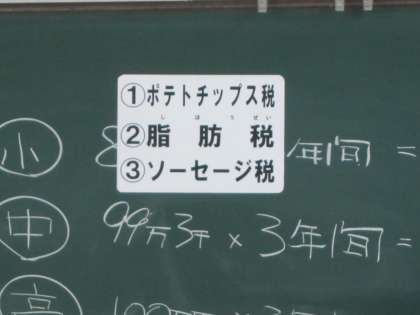 ①ポテトチップス税
しぼうぜい
②脂肪税
③ソーセージ税
小 8 年間 =
中 99万3千 × 3年間 =
高